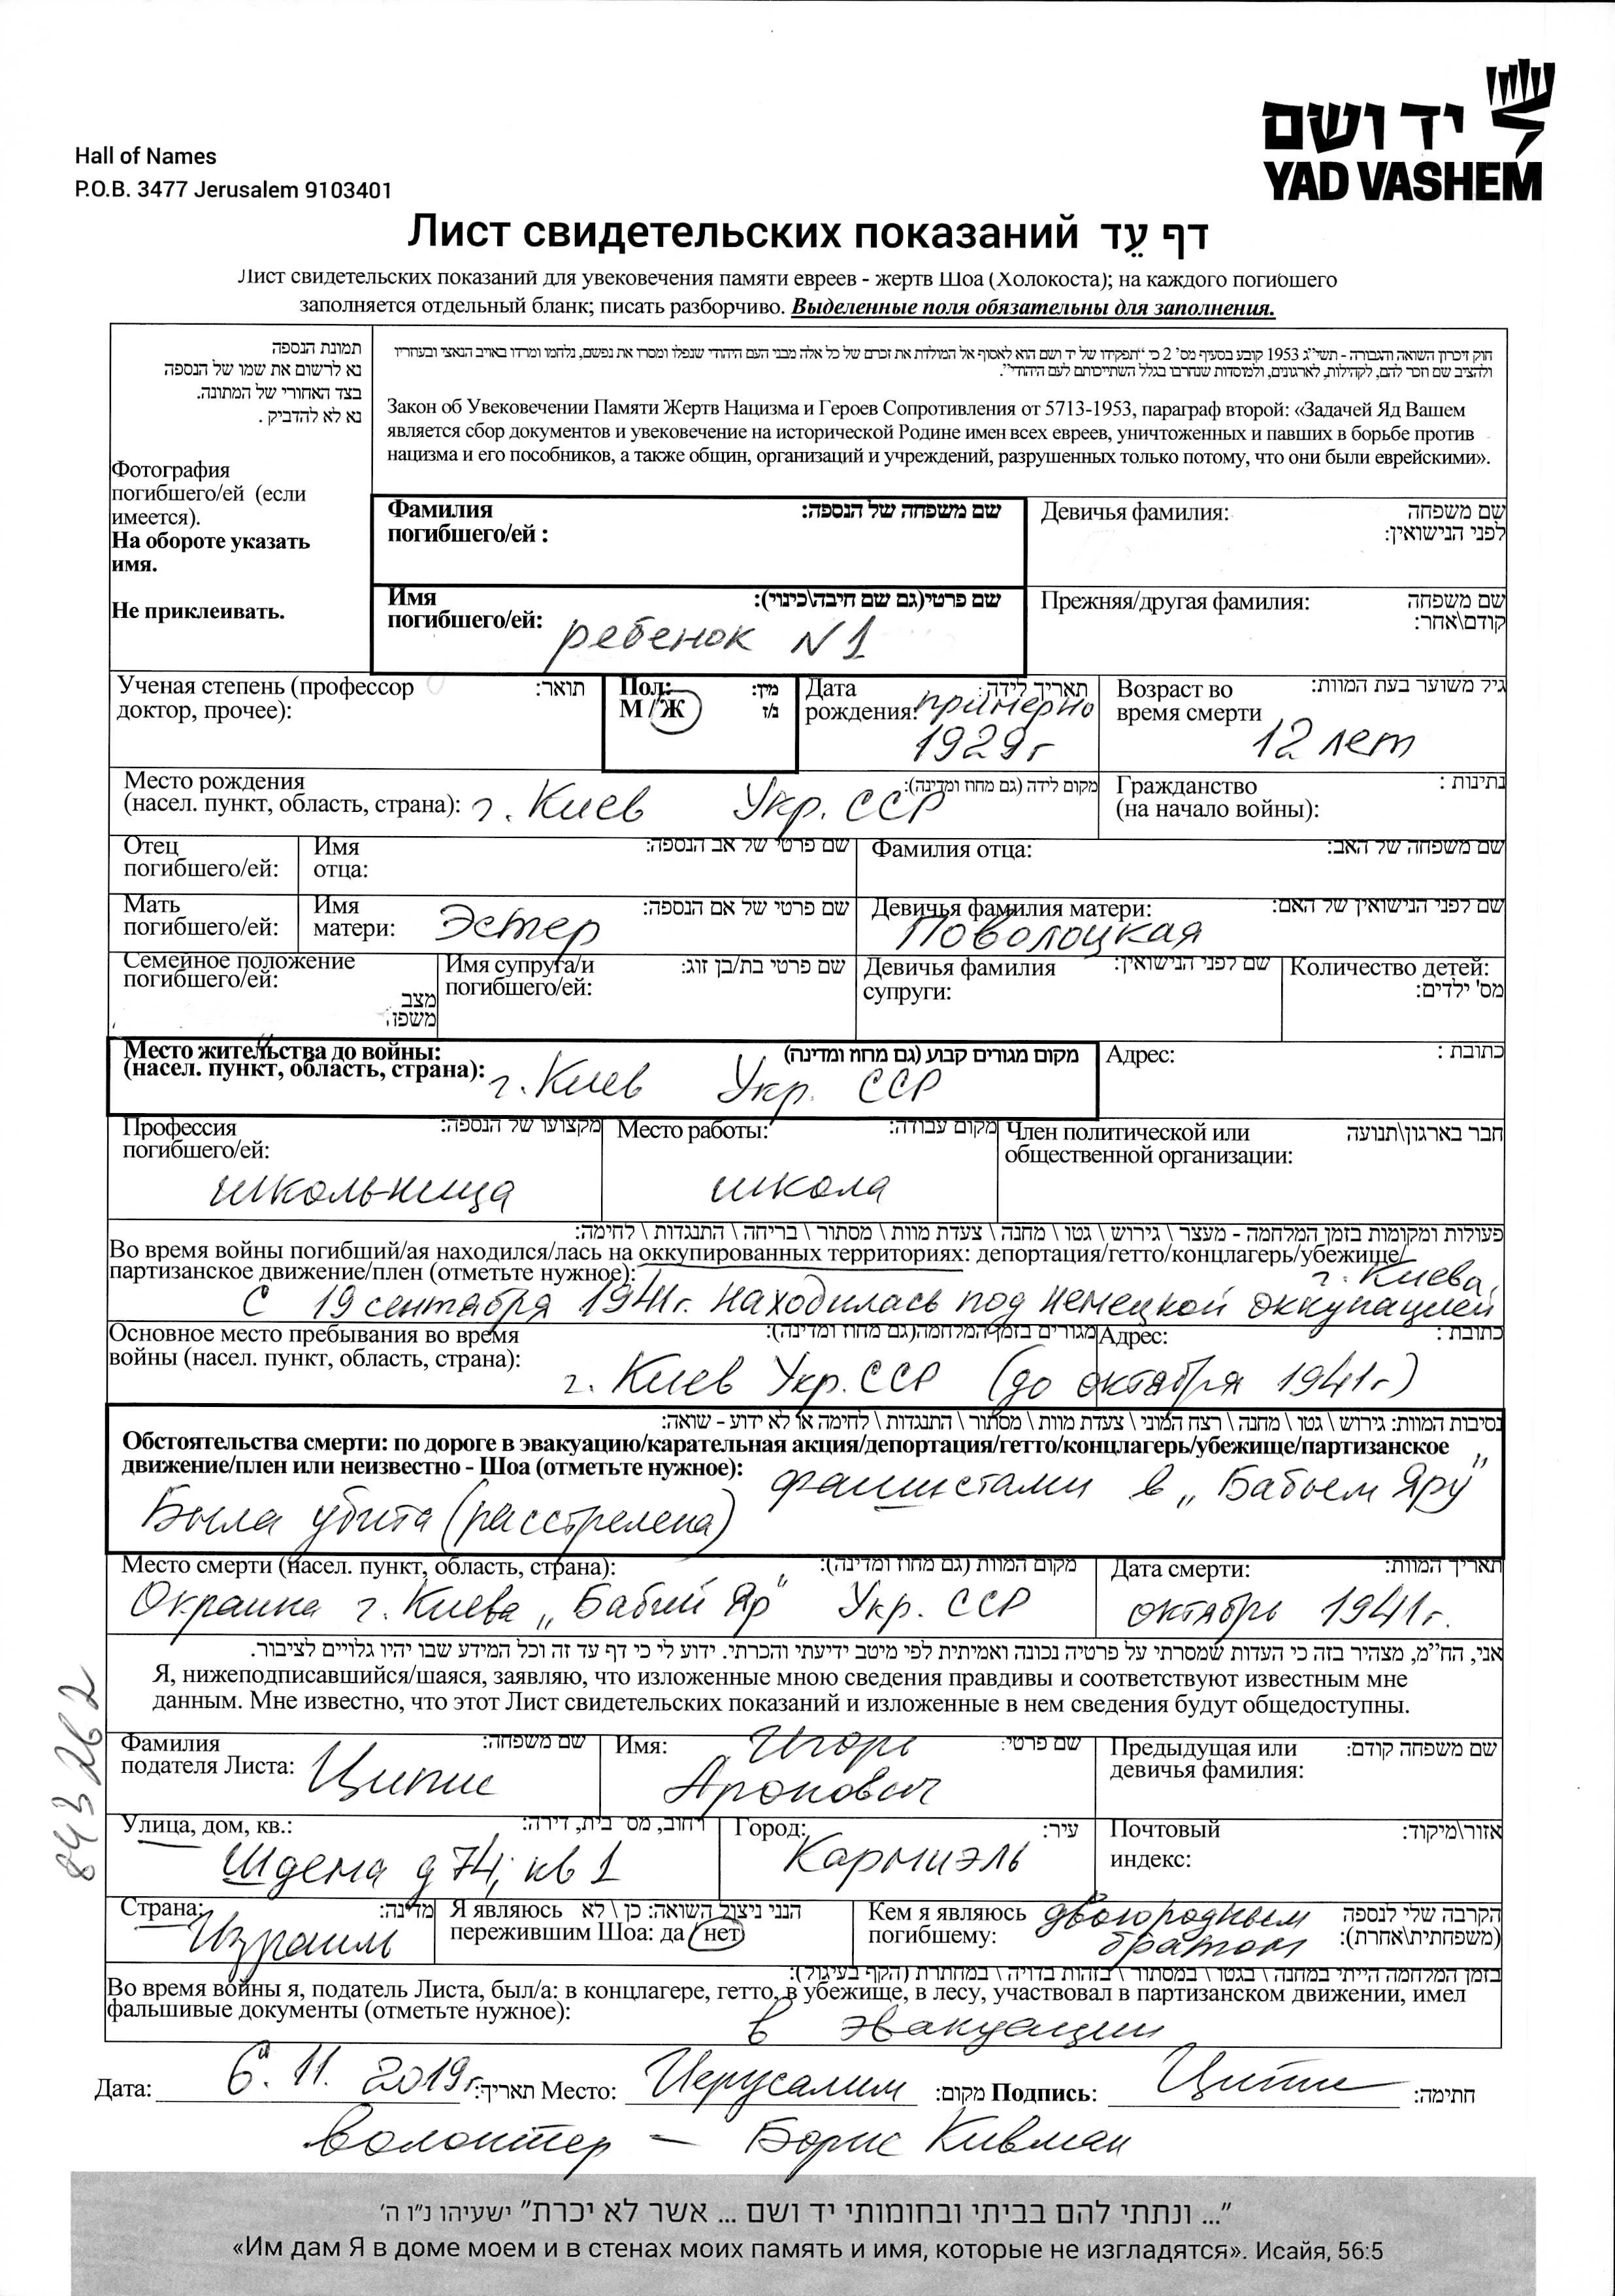 יד ושם
YAD VASHEM
Hall of Names
P.O.B. 3477 Jerusalem 9103401
Лист свидетельских показаний דף עֵד
Лист свидетельских показаний для увековечения памяти евреев - жертв Шоа (Холокоста); на каждого погибшего
заполняется отдельный бланк; писать разборчиво. Выделенные поля обязательны для заполнения.
תמונת הנספה
נא לרשום את שמו של הנספה
בצד האחורי של המתונה.
נא לא להדביק .
Фотография
погибшего/ей (если
имеется).
На обороте указать
имя.
Не приклеивать.
חוק זיכרון השואה והגבורה - תשי"ג 1953 קובע בסעיף מס' 2 כי "תפקידו של יד ושם הוא לאסוף אל המולדת את זכרם של כל אלה מבני העם היהודי שנפלו ומסרו את נפשם, נלחמו ומרדו באויב הנאצי ובעוזריו
ולהציב שם וזכר להם, לקהילות, לארגונים, ולמוסדות שנחרבו בגלל השתייכותם לעם היהודי".
Закон об Увековечении Памяти Жертв Нацизма и Героев Сопротивления от 5713-1953, параграф второй: «Задачей Яд Вашем
является сбор документов и увековечение на исторической Родине имен всех евреев, уничтоженных и павших в борьбе против
нацизма и его пособников, а также общин, организаций и учреждений, разрушенных только потому, что они были еврейскими».
Фамилия שם משפחה של הנספה:
погибшего/ей :
Девичья фамилия: שם משפחה
לפני הנישואין:
Имя שם פרטי(גם שם חיבה\כינוי):
погибшего/ей: ребенок N 1
Прежняя/другая фамилия: שם משפחה
קודם\אחר:
Ученая степень (профессор תואר:
доктор, прочее):
Пол: מין:
М / Ж ז/נ
Дата תאריך לידה:
рождения: примерно
1929 г
Возраст во גיל משוער בעת המוות:
время смерти 12 лет
Место рождения מקום לידה (גם מחוז ומדינה):
(насел. пункт, область, страна): г. Киев Укр. ССР
Гражданство נתינות :
(на начало войны):
Отец
погибшего/ей:
Имя שם פרטי של אב הנספה:
отца:
Фамилия отца: שם משפחה של האב:
Мать
погибшего/ей:
Имя שם פרטי של אם הנספה:
матери: Эстер
Девичья фамилия матери: שם לפני הנישואין של האם:
Поволоцкая
Семейное положение
погибшего/ей:
מצב
משפו
Имя супруга/и שם פרטי בת/בן זוג:
погибшего/ей:
Девичья фамилия שם לפני הנישואין:
супруги:
Количество детей:
מס' ילדים:
Место жительства до войны: מקום מגורים קבוע (גם מחוז ומדינה)
(насел. пункт, область, страна): г. Киев Укр. ССР
Адрес: כתובת :
Профессия מקצועו של הנספה:
погибшего/ей:
школьница
Место работы: מקום עבודה:
школа
Член политической или חבר בארגון\תנועה
общественной организации:
פעולות ומקומות בזמן המלחמה - מעצר \ גירוש \ גטו \ מחנה \ צעדת מוות \ מסתור \ בריחה \ התנגדות \ לחימה:
Во время войны погибший/ая находился/лась на оккупированных территориях: депортация/гетто/концлагерь/убежище/
партизанское движение/плен (отметьте нужное): г. Киева
С 19 сентября 1941г. находилась под немецкой оккупацией
Основное место пребывания во время מגורים בזמן המלחמה(גם מחוז ומדינה):
войны (насел. пункт, область, страна):
Адрес: כתובת :
г. Киев Укр. ССР (до октября 1941г)
נסיבות המוות: גירוש \ גטו \ מחנה \ רצח המוני \ צעדת מוות \ מסתור \ התנגדות \ לחימה או לא ידוע - שואה:
Обстоятельства смерти: по дороге в эвакуацию/карательная акция/депортация/гетто/концлагерь/убежище/партизанское
движение/плен или неизвестно - Шоа (отметьте нужное): фашистами в „Бабьем Яру"
Была убита (расстрелена)
Место смерти (насел. пункт, область, страна): מקום המוות (גם מחוז ומדינה):
Окраина г. Киева „Бабий Яр" Укр. ССР
Дата смерти: תאריך המוות:
октябрь 1941г.
אני, הח"מ, מצהיר בזה כי העדות שמסרתי על פרטיה נכונה ואמיתית לפי מיטב ידיעתי והכרתי. ידוע לי כי דף עד זה וכל המידע שבו יהיו גלויים לציבור.
Я, нижеподписавшийся/шаяся, заявляю, что изложенные мною сведения правдивы и соответствуют известным мне
данным. Мне известно, что этот Лист свидетельских показаний и изложенные в нем сведения будут общедоступны.
843 262
Фамилия שם משפחה:
подателя Листа: Ципис
Имя: Игорь שם פרטי:
Аронович
Предыдущая или שם משפחה קודם:
девичья фамилия:
Улица, дом, кв.: רחוב, מס' בית, דירה:
Шдема д 74, кв 1
Город: עיר:
Кармиэль
Почтовый אזור\מיקוד:
индекс:
Страна: מדינה:
Израиль
Я являюсь הנני ניצול השואה: כן \ לא
пережившим Шоа: да / нет
Кем я являюсь двоюродным הקרבה שלי לנספה
погибшему: братом (משפחתית\אחרת):
בזמן המלחמה הייתי במחנה \ בגטו \ במסתור \ בזהות בדויה \ במחתרת (הקף בעיגול):
Во время войны я, податель Листа, был/а: в концлагере, гетто, в убежище, в лесу, участвовал в партизанском движении, имел
фальшивые документы (отметьте нужное): в эвакуации
Дата: 6. 11. 2019г. תאריך: Место: Иерусалим מקום: Подпись: Ципис חתימה:
волонтер — Борис Кивман
"... ונתתי להם בביתי ובחומותי יד ושם ... אשר לא יכרת" ישעיהו נ"ו ה'
«Им дам Я в доме моем и в стенах моих память и имя, которые не изгладятся». Исайя, 56:5